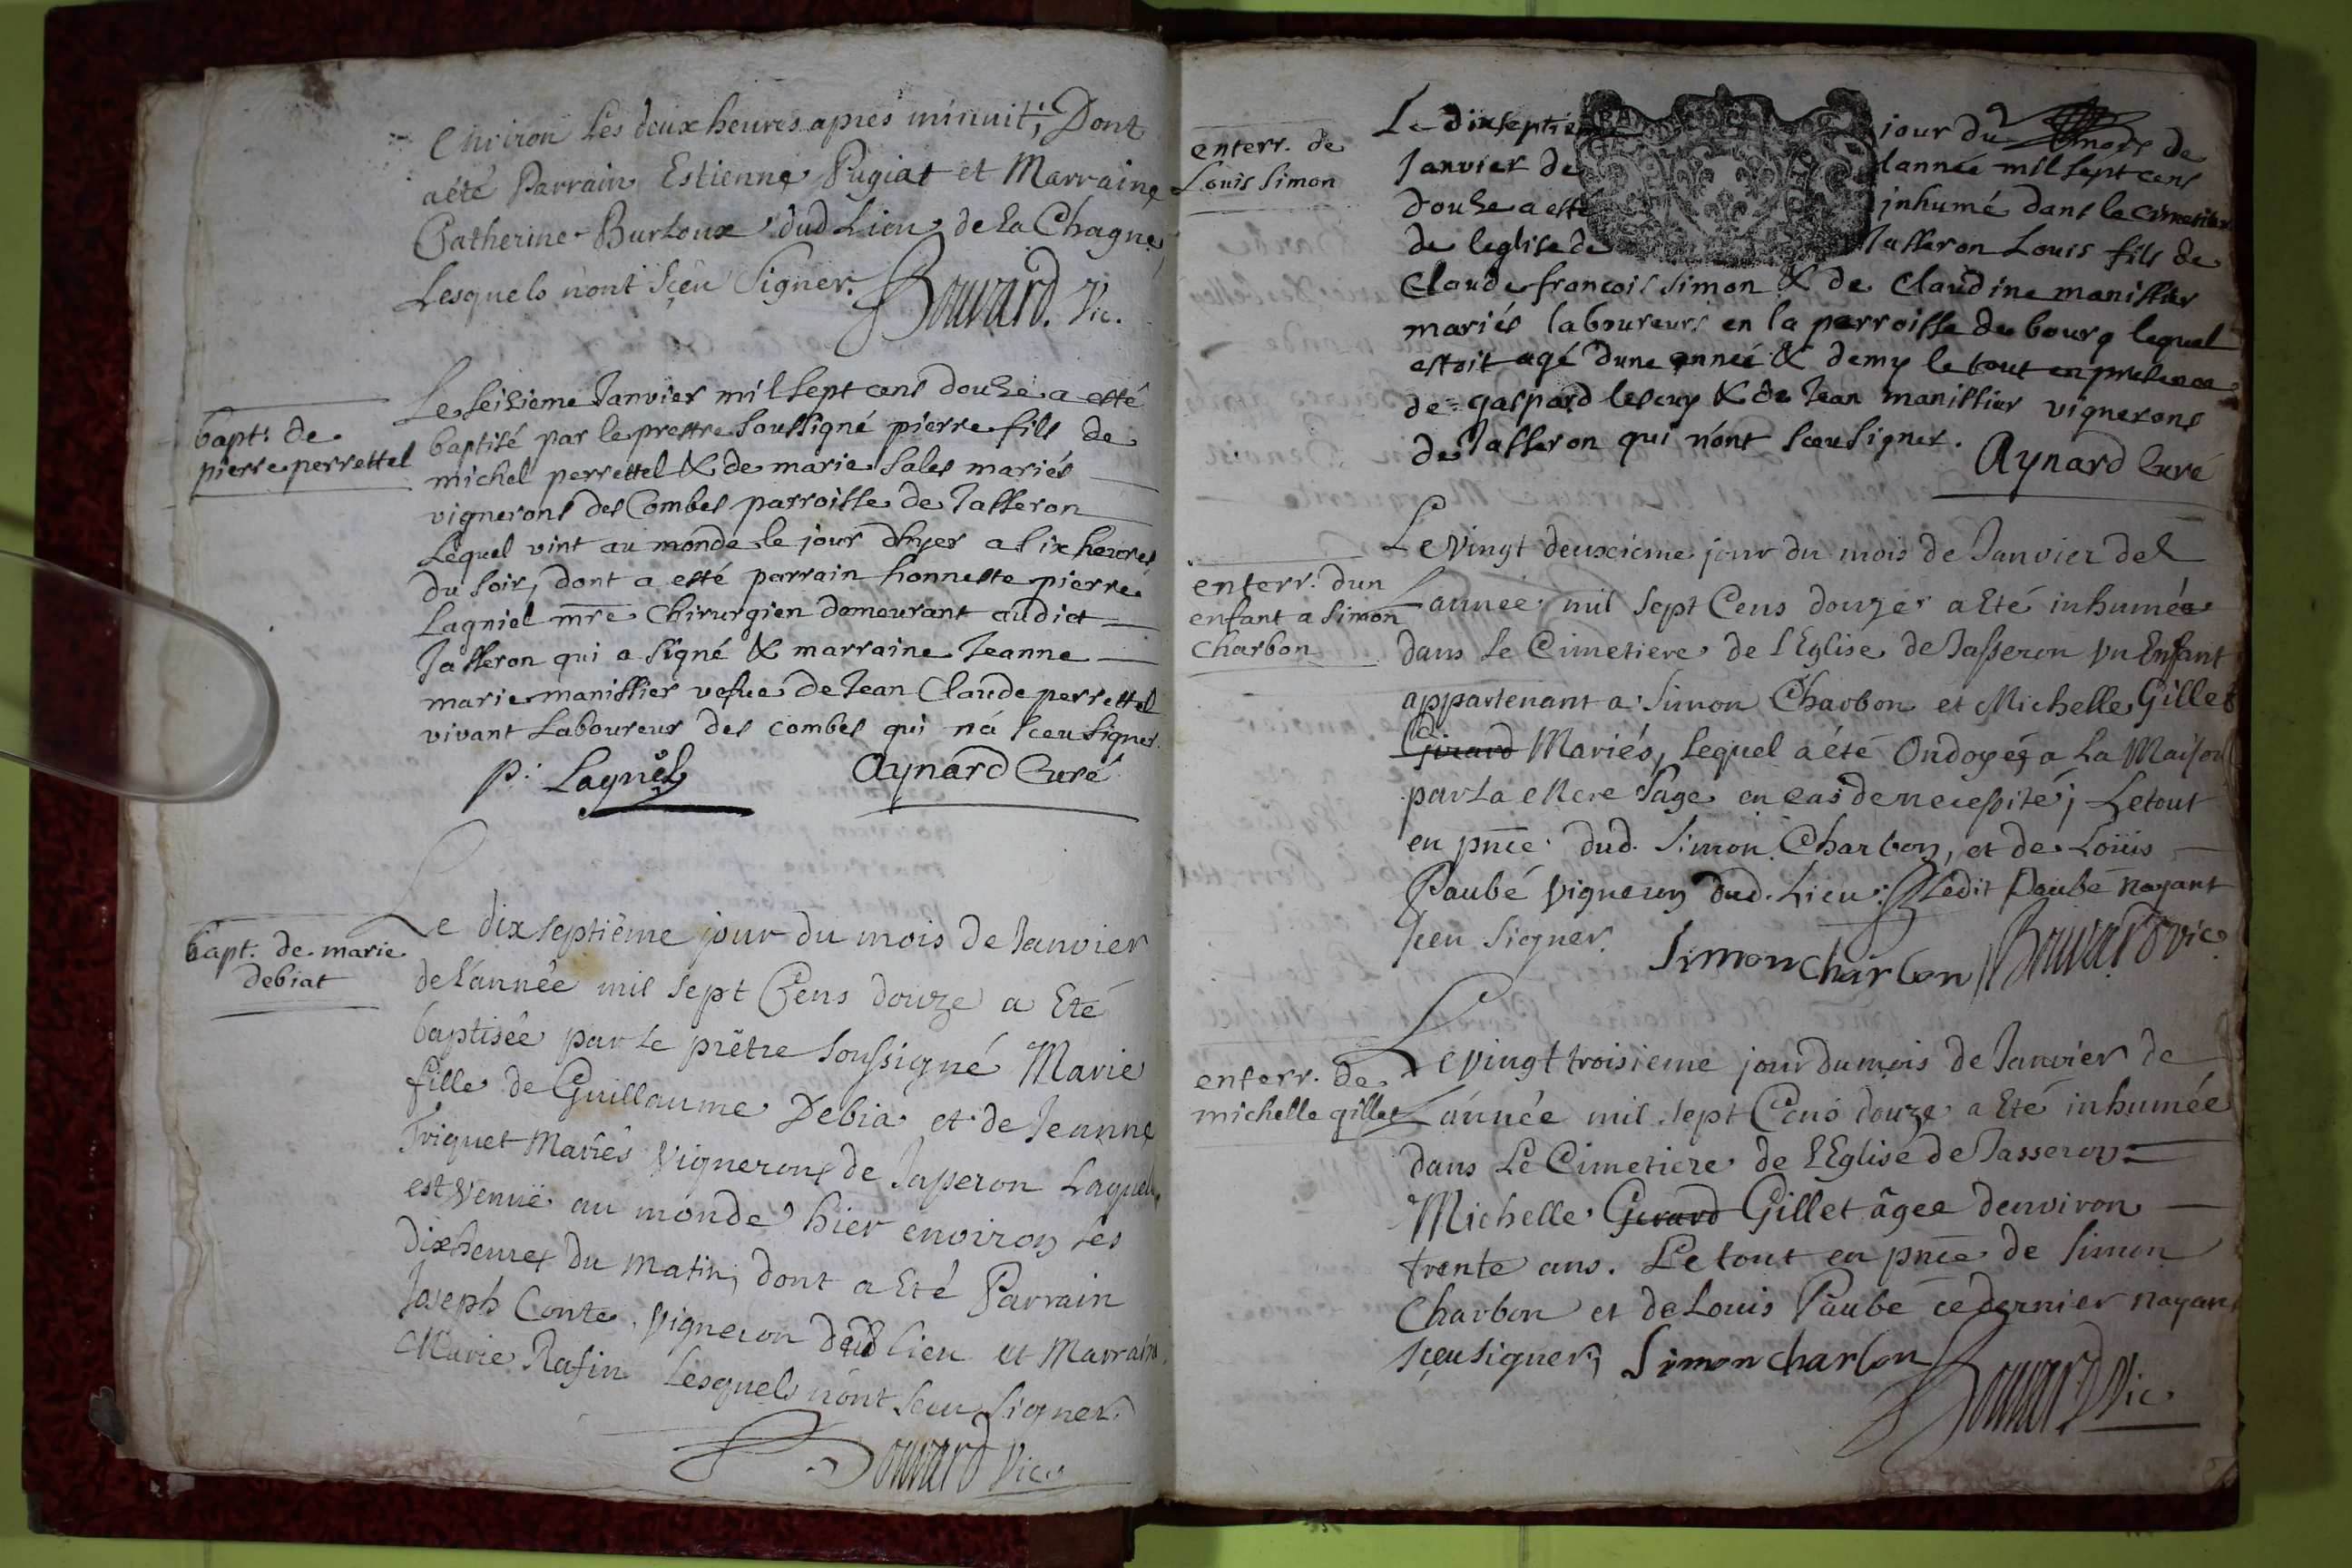 Environ Les deux heures apres minuit; Dont
a été Parrain Estienne Pugiat et Marraine
Catherine Burloux dud Lieu de La Chagne
Lesquels n'ont sçeu Signer. Bouvard. Vic.
bapt. de
pierre perrettel
Le seizieme Janvier mil sept cens douze a esté
baptisé par le prestre soussigné pierre fils de
michel perrettel & de marie sales mariés
vignerons des Combes parroisse de Jasseron
Lequel vint au monde le jour dhyer a six heures
du soir, dont a esté parrain honneste pierre
Lagniel mre Chirurgien demeurant audict
Jasseron qui a signé & marraine Jeanne
marie manissier vefue de Jean Claude perrettel
vivant Laboureur des combes qui n'a sceu signer.
p. Lagniel Aynard Curé
bapt. de marie
debiat
Le dixseptième jour du mois de Janvier
de L'année mil sept Cens douze a Eté
baptisée par le prêtre soussigné Marie
fille de Guillaume Debia et de Jeanne
Triquet Mariés Vignerons de Jasseron Laquelle
est Venuë au monde hier environ les
dix heures du matin, dont a Eté Parrain
Joseph Conte Vigneron dud lieu et Marraine
Marie Rafin Lesquels n'ont sceu signer.
Bouvard Vic.
enterr. de
Louis Simon
Le dixseptieme jour du mois de
Janvier de lannée mil sept cens
douze a esté inhumé dans le cimetier
de leglise de Jasseron Louis fils de
Claude francois simon & de Claudine manissier
mariés laboureurs en la parroisse du bourg lequel
estoit agé dune anneé & demy le tout en presence
de gaspard lescuy & de Jean manissier vignerons
de Jasseron qui n'ont sceu signer. Aynard Curé
enterr. dun
enfant a simon
Charbon
Le Vingt deuxieme jour du mois de Janvier de
L'année mil sept Cens douze a Eté inhumée
dans le Cimetiere de l'Eglise de Jasseron Vn Enfant
appartenant a Simon Charbon et Michelle Gillet
Girard Mariés, Lequel a été Ondoyé a La Maison
par La Mere Sage en cas de necessité; Le tout
en pnce dud. Simon Charbon, et de Loüis
Paubé Vigneron dud. Lieu; Ledit Paubé nayant
sceu signer. Simon Charbon Bouvard Vic
enterr. de
michelle gillet
Le vingt troisieme jour du mois de Janvier de
L'année mil sept Cens douze a Eté inhumée
dans Le Cimetiere de L'Eglise de Jasseron
Michelle Girard Gillet âgee d'environ
trente ans. Le tout en pnce de Simon
Charbon et de Louis Paube ce dernier nayant
sçeu signer, Simon charbon
Bouvard Vic